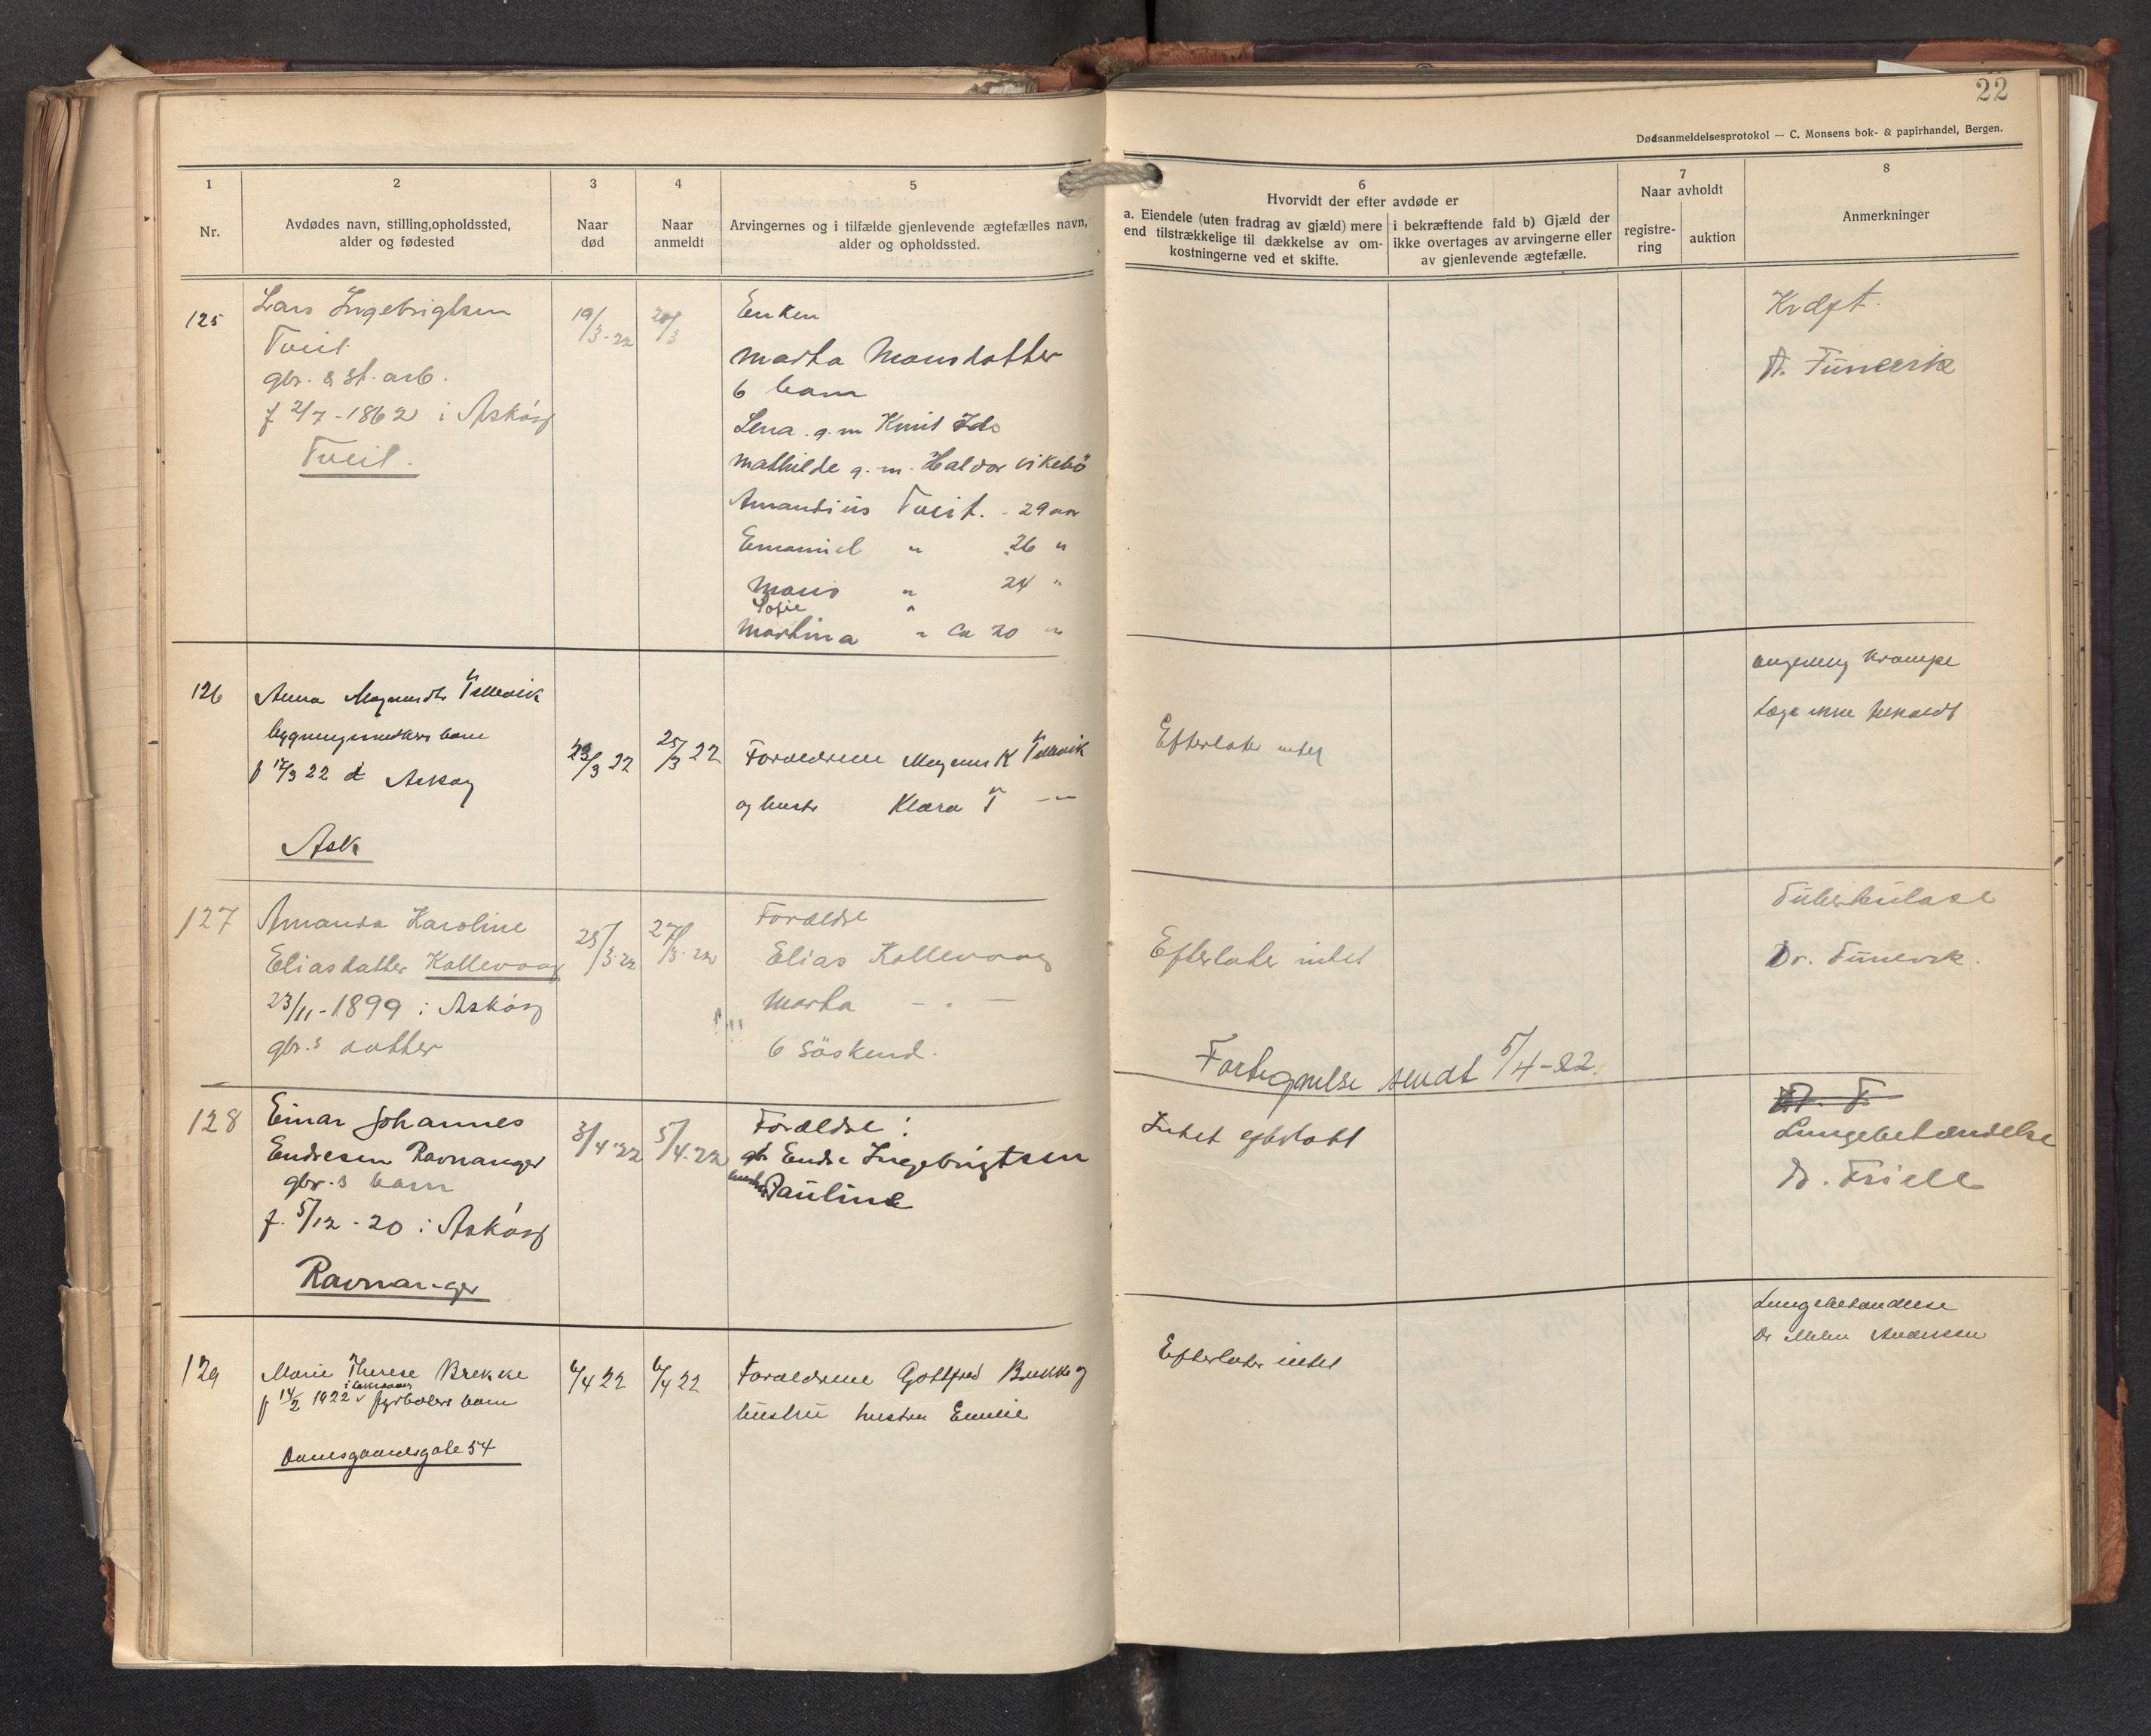 22
Dødsanmeldelsesprotokol — C. Monsens bok- & papirhandel, Bergen.
1
2
3
4
5
6
7
8
Nr.
Avdødes navn, stilling, opholdssted,
alder og fødested
Naar
død
Naar
anmeldt
Arvingernes og i tilfælde gjenlevende ægtefælles navn,
alder og opholdssted.
Hvorvidt der efter avdøde er
a. Eiendele (uten fradrag av gjæld) mere
end tilstrækkelige til dækkelse av om-
kostningerne ved et skifte.
i bekræftende fald b) Gjæld der
ikke overtages av arvingerne eller
av gjenlevende ægtefælle.
Naar avholdt
registre-
ring
auktion
Anmerkninger
125
Lars Ingebrigtsen
Tveit
gbr. & st. arb.
f 2/7 - 1862 i Askøy
Tveit.
19/3-22
20/3
Enken
Marta Monsdatter
6 barn
Lena g. m Knut
Mathilde g. m. Haldor Vikebö
Amandius Tveit. - 29 aar
Emanuel " 26 "
Maris " 24 "
Sofie "
Martina " ca 20 "
Kræft.
126
Anna
bygningssnedkers barn
f 12/3 22 Askøy
Ask
23/3 22
25/3 22
Forældrene Magnus K
og hustr Klara T —
Efterlater intet
krampe
Læge ikke
127
Amanda Karoline
Eliasdatter Kollevaag
23/11-1899 i Askøy
gbr.s datter
25/3-22
27/3-22
Forældre
Elias Kollevaag
Marta - " -
6 Söskend.
Efterlater intet
Tuberkulose
Fortegnelse sendt 5/4-22.
128
Einar Johannes
Endresen Ravnanger
gbr.s barn
f. 5/12 - 20 i Askøy
Ravnanger
3/4 22
5/4-22
Forældre:
gb Endre Ingebrigtsen
hustru Pauline
Intet efterlatt
Lungebetændelse
Dr. Friele
129
Marie Therese Brekke
f 14/2 1922 i Laksevaag fyrbøters barn
Damsgaardsgate 54
6/4 22
6/4 22
Forældrene Gottfred Brekke og
hustru hustru Emilie
Efterlater intet
Lungebetændelse
Dr Andersen